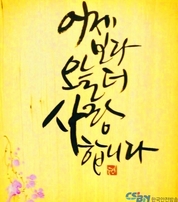 어제
보다
오늘 더
사랑
합니다
CSBN
한국안전방송